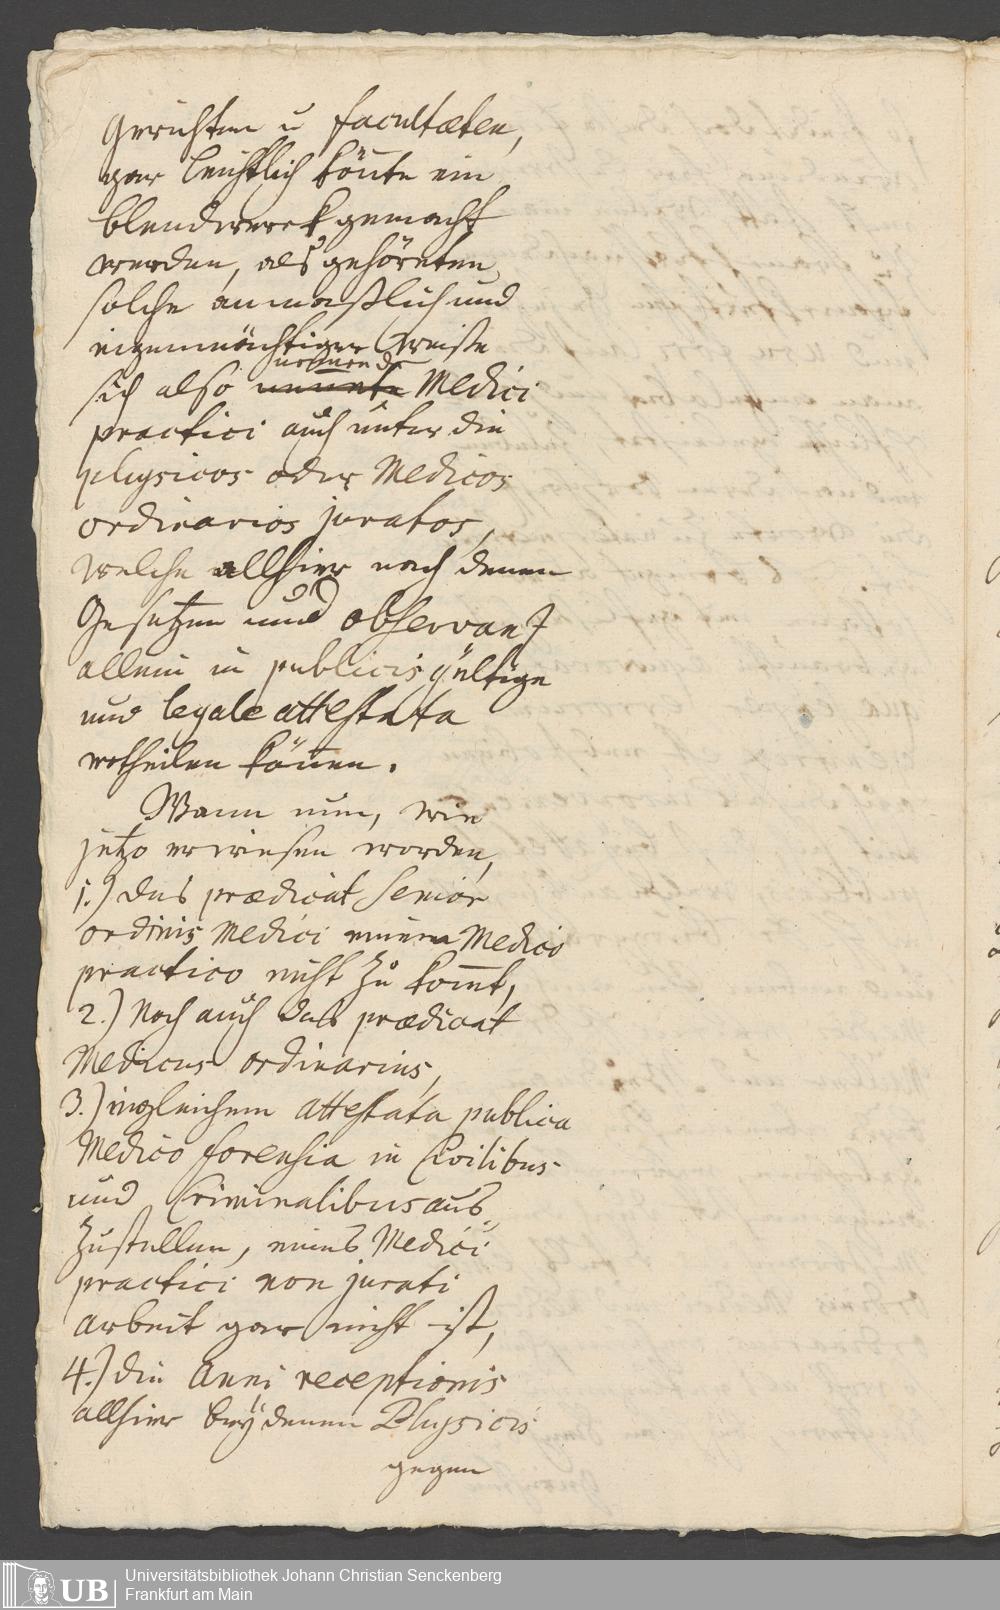 Gerichten u facultæten,
gar leichtlich könte ein
blendwerck gemacht
werden, als gehörten
solche anmaßlich und
eigenmächtiger Weiße
nennende
sich also nennete Medici
practici auch unter die
physicos oder Medicos
ordinarios juratos,
welche allhier nach denen
Gesetzen und observantz
allein in publicis gültige
und legale attestata
ertheilen können.
Wann nun, wie
jetzo erwiesen worden,
1.) das prædicat Senior
ordinis Medici einem Medico
practico nicht zu komt,
2.) Noch auch das prædicat
Medicus ordinarius,
3.) ingleichem attestata publica
Medico forensia in Civilibus
und Criminalibus aus
zustellen, eines Medici
practici non jurati
arbeit gar nicht ist,
4.) die Anni receptionis
allhier bey denen Physicis
gegen
UB
Universitätsbibliothek Johann Christian Senckenberg
Frankfurt am Main